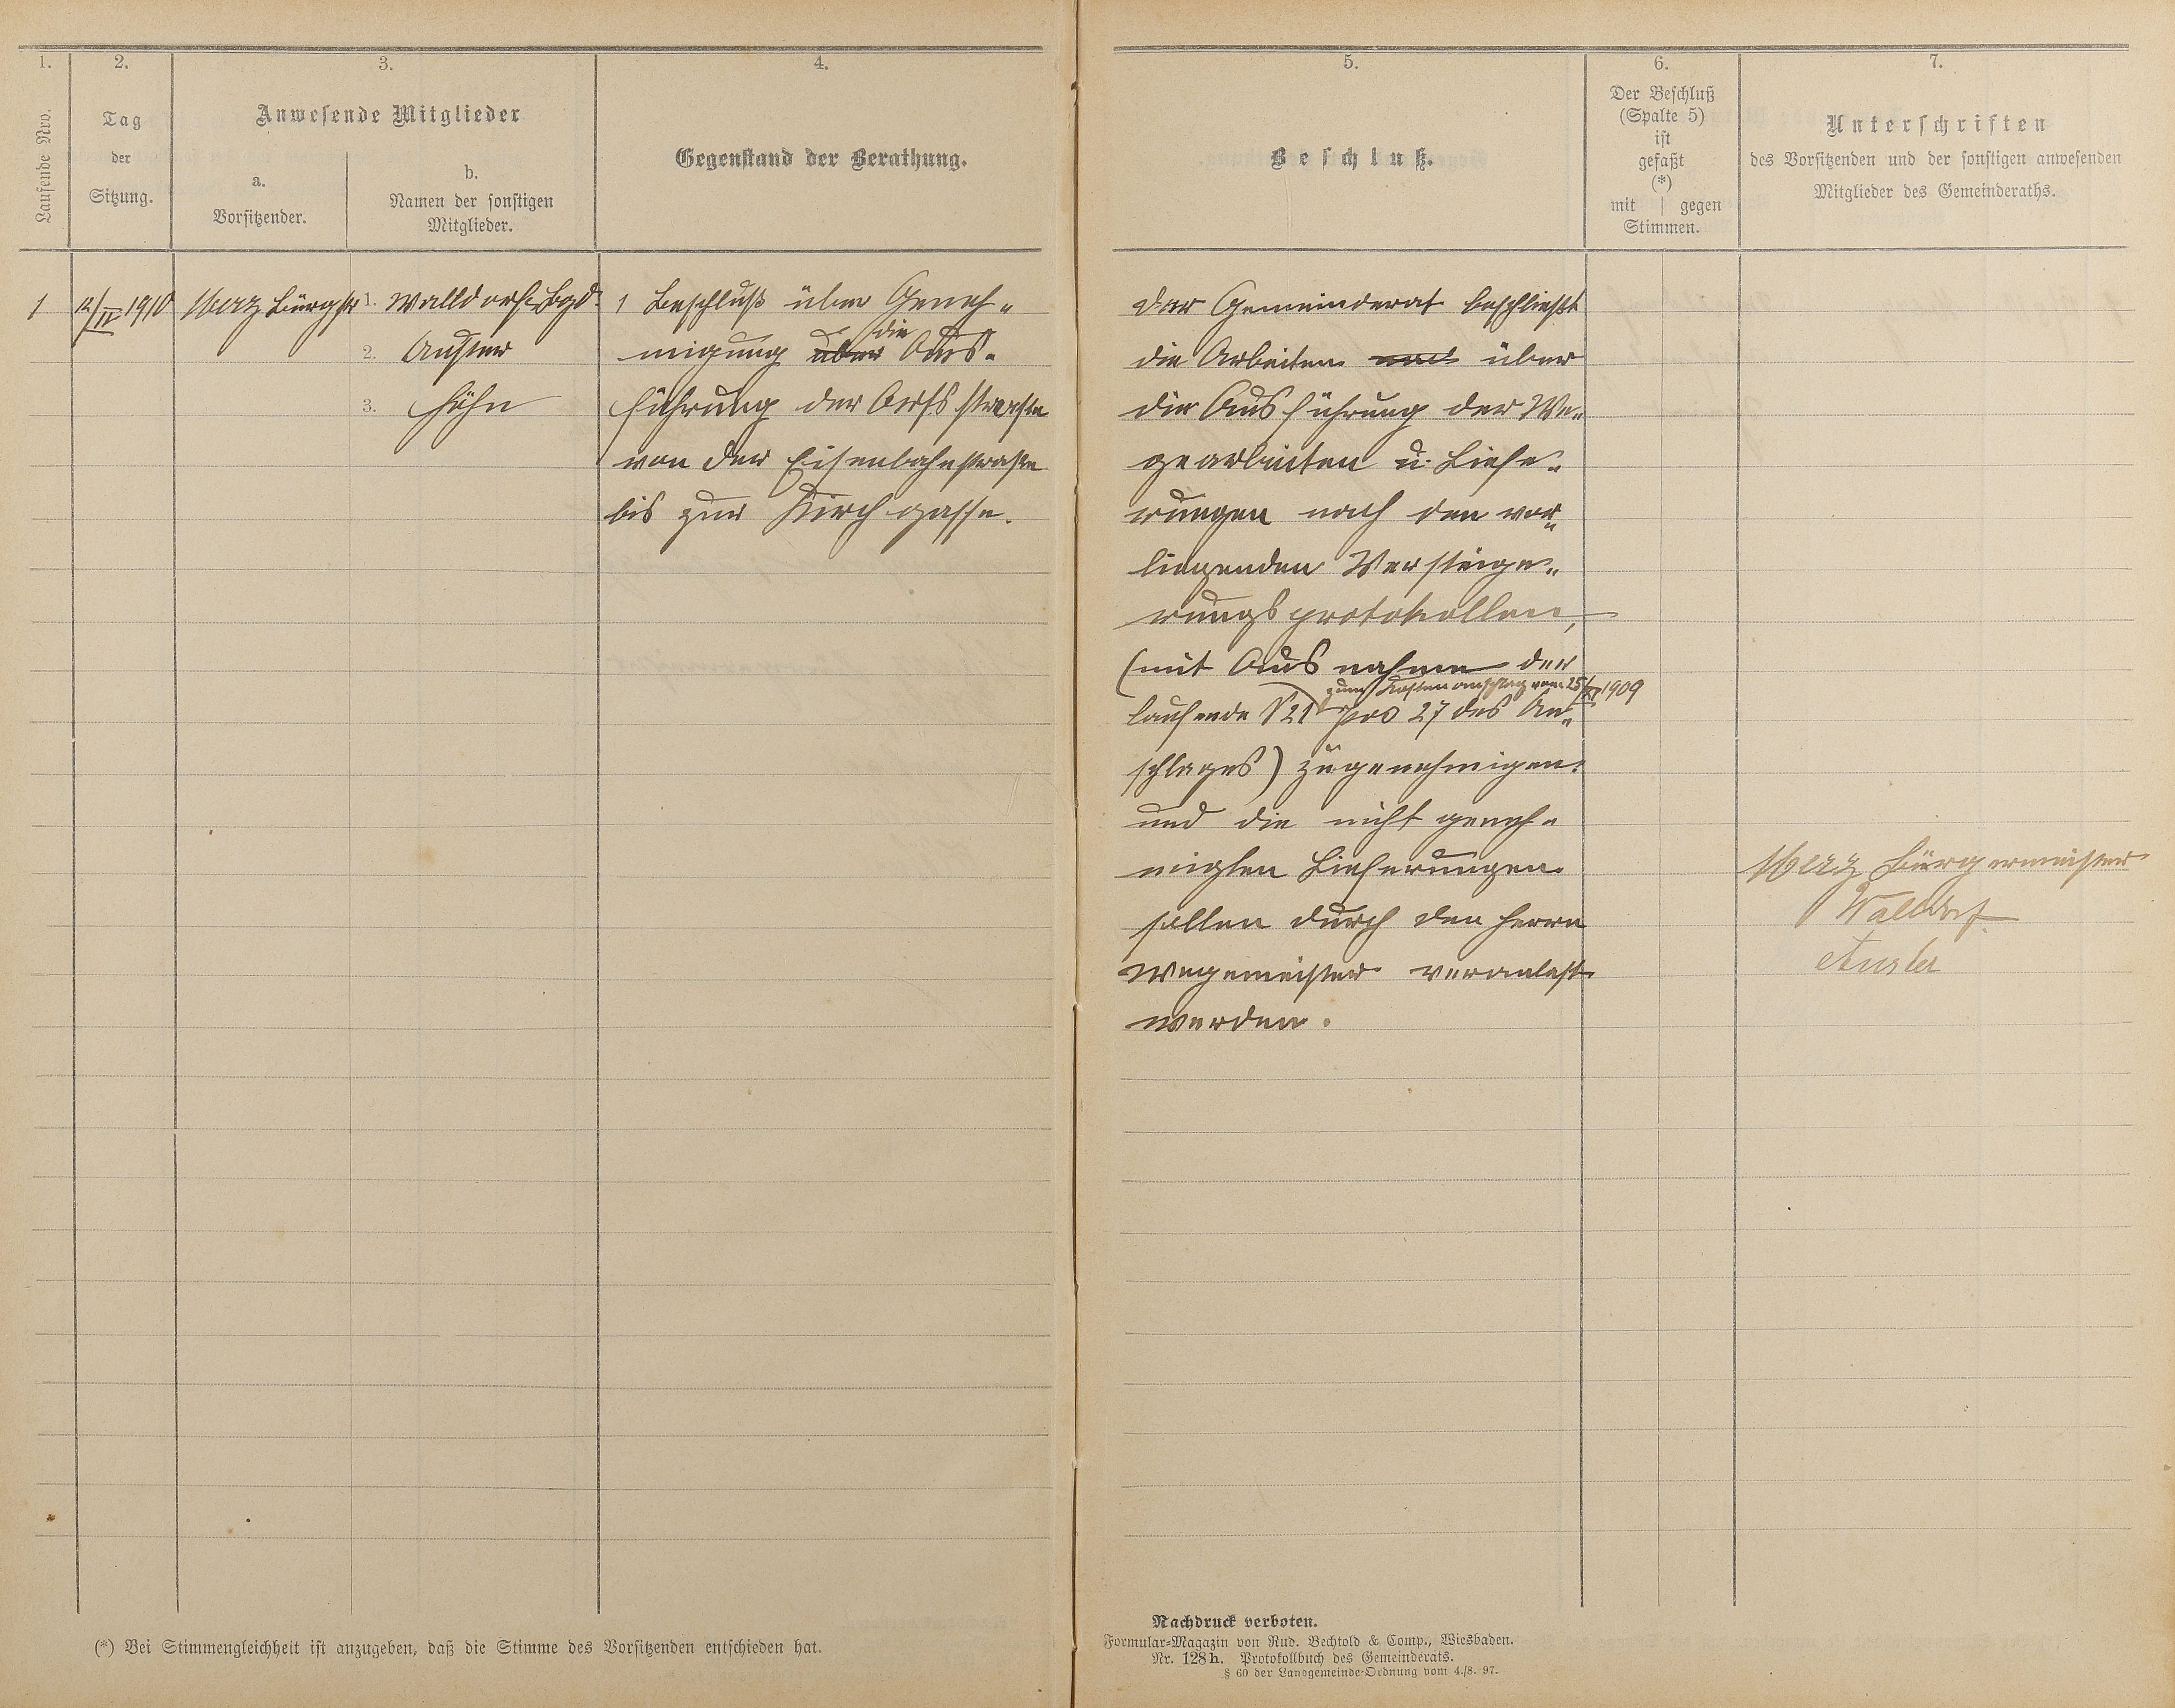 1.
2.
3.
4.
Laufende Nro.
Tag
der
Sitzung.
Anwesende Mitglieder
a.
Vorsitzender.
b.
Namen der sonstigen
Mitglieder.
Gegenstand der Berathung.
1
12/IV 1910
Merz Bürgstr
1. Walldorf Bgd.
2. Auster
3. Höhn
1 Beschluß über Geneh-
migung über die Aus-
führung der Ortsstraße
von der Eisenbahnstraße
bis zur Kirchgasse.
(*) Bei Stimmengleichheit ist anzugeben, daß die Stimme des Vorsitzenden entschieden hat.
5.
6.
7.
Beschluß.
Der Beschluß
(Spalte 5)
ist
gefaßt
(*)
mit | gegen
Stimmen.
Unterschriften
des Vorsitzenden und der sonstigen anwesenden
Mitglieder des Gemeinderaths.
der Gemeinderat beschließt
die Arbeiten über
die Ausführung der We-
gearbeiten u. Liefe-
rungen nach den vor-
liegenden Versteige-
rungsprotokollen,
(mit Ausnahme der
zum Kostenanschlag vom 25/XI 1909
laufende § 21 pos 27 des An-
schlages) zugenehmigen.
und die nicht geneh-
migten Lieferungen
sollen durch den Herrn
Wegemeister veranlaßt
werden.
Merz Bürgermeister
Walldorf
Auster
Nachdruck verboten.
Formular-Magazin von Rud. Bechtold & Comp., Wiesbaden.
Nr. 128 h. Protokollbuch des Gemeinderats.
§ 60 der Landgemeinde-Ordnung vom 4./8. 97.